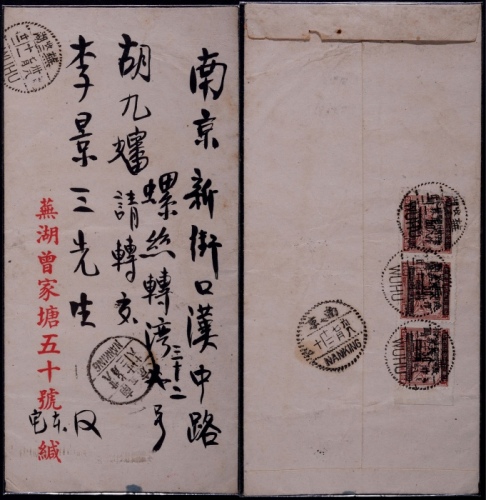 南京新街口漢中路
螺絲轉灣三十二号
胡九嬸請轉交
李景三先生
蕪湖曾家塘五十號緘
WUHU
NANKING
南京
NANKING
WUHU
WUHU
WUHU